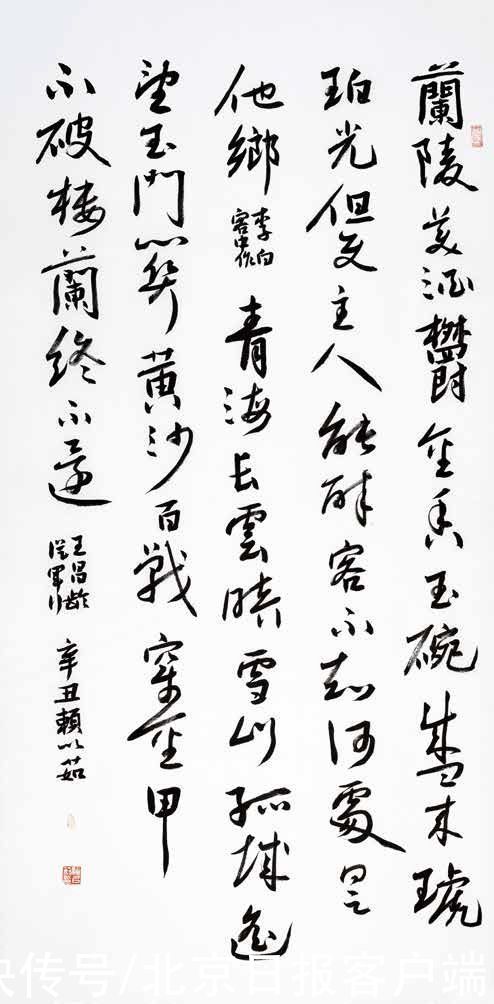 蘭陵美酒鬱金香玉碗盛來琥
珀光但使主人能醉客不知何處是
他鄉 李白客中作 青海長雲暗雪山孤城遙
望玉門關黃沙百戰穿金甲
不破樓蘭終不還 王昌齡從軍行 辛丑賴以茹
快传号/北京日报客户端